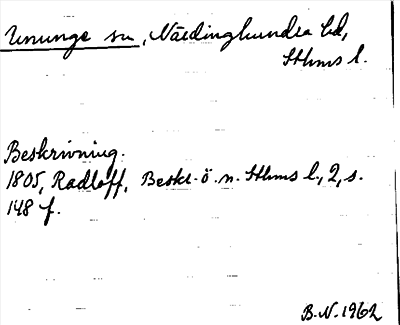 Ununge sn, Närdinghundra hd,
Sthms l.
Beskrivning.
1805, Radloff, Beskr. ö. n. Sthms l, 2, s.
148 f.
B.N. 1962